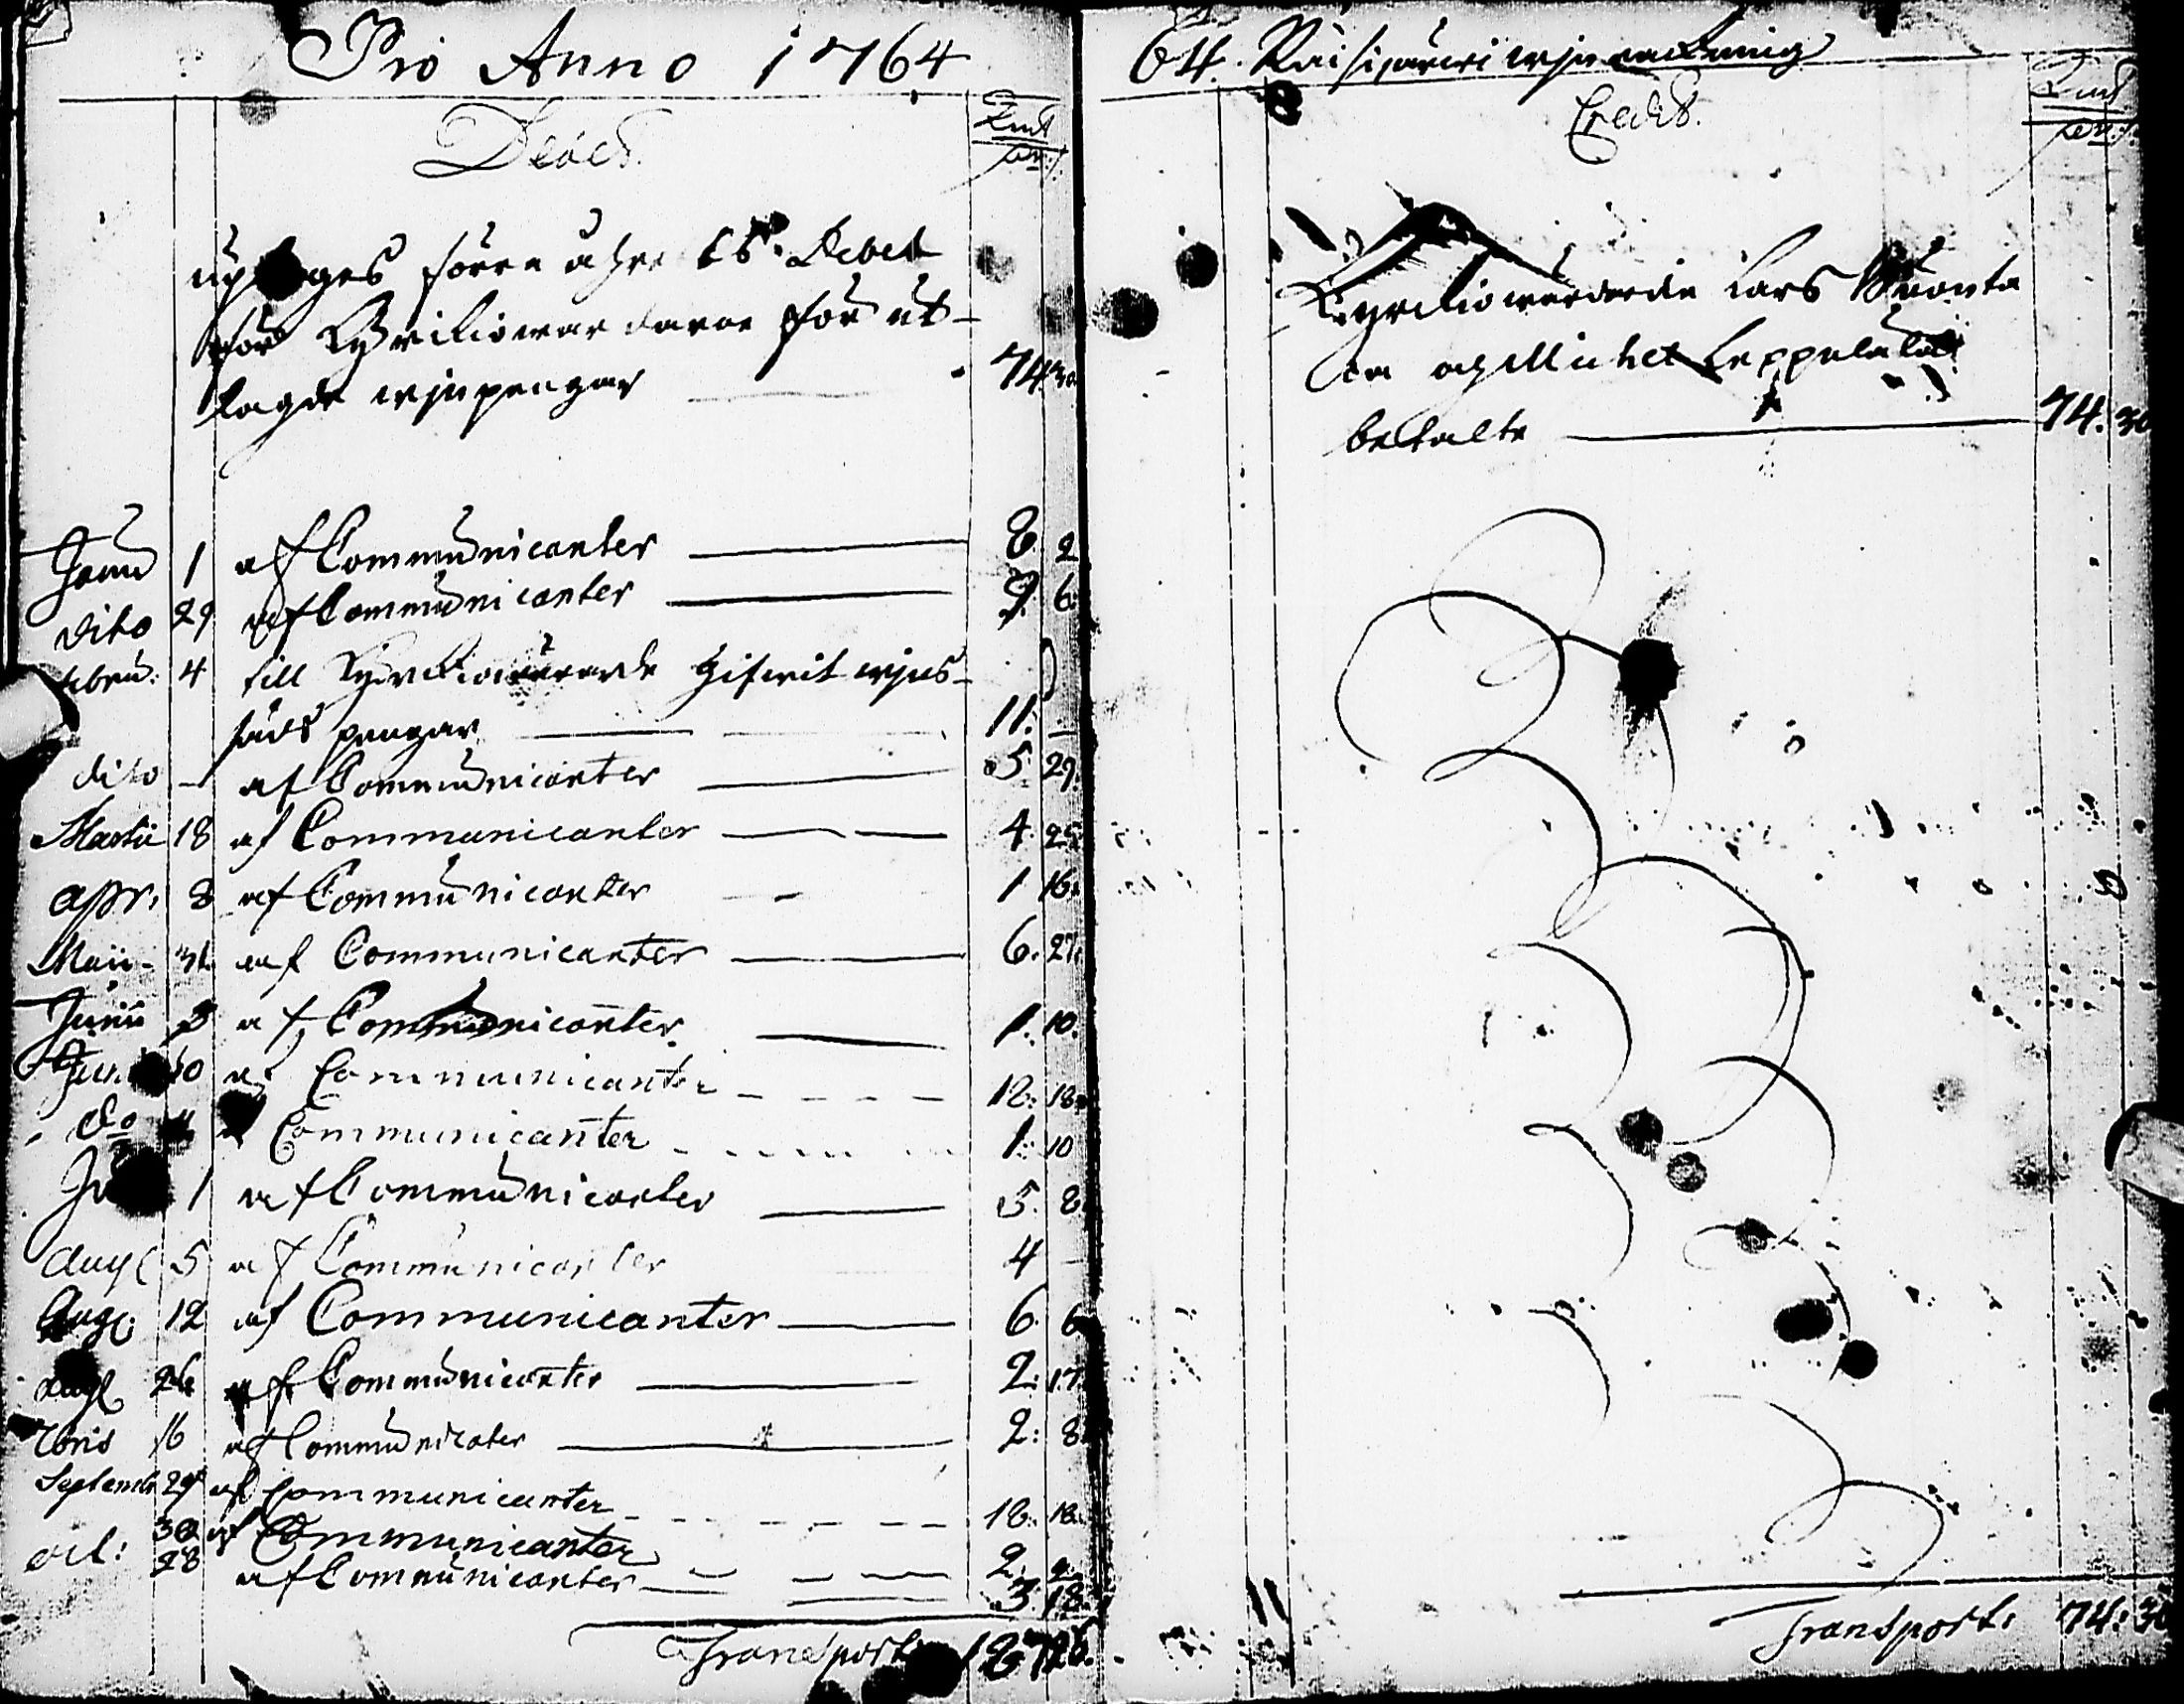 Pro Anno 1764
Debet.
Kmt
pr:
förra åhrs Debet
för Kyrkiowärdarne för ut-
lagde wijnpengar 74. 30
Janu 1 af Communicanter 8. 2
Dito 29 af Communicanter 9. 6.
Febru: 4 till Kyrkiowärde gifwit wijns-
säds pengar 11. –
dito – af Communicanter 5. 29.
Martii 18 af Communicanter 4. 25
Apr: 8 af Communicanter 1 16.
Maii 31. af Communicanter 6. 27.
Junii 3 af Communicanter 1. 10.
af Communicanter 12. 18.
Do Communicanter 1. 10
1 af Communicanter 5. 8.
Aug 5 af Communicanter 4 –
Aug: 12 af Communicanter 6. 6
Augt 26 af Communicanter 2. 17.
7bris 16 af Communicater 2. 8.
Septembr 29 af Communicanter 18.
30 af Communicanter 2. 2.
oct: 28 af Communicanter 3. 18.
Transport
64. Räisijärwi wijnräkning
Credit.
Kmt
pr:
Kyrckiowärderde Lars Wuonta
och Michel Leppälä
betalte 74. 30
Transport: 74. 30